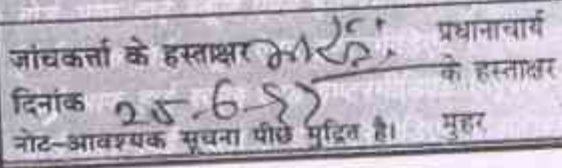 जांचकर्त्ता के हस्ताक्षर
प्रधानाचार्य
के हस्ताक्षर
दिनांक 25.6-
नोट-आवश्यक सूचना पीछे मुद्रित है।
मुहर